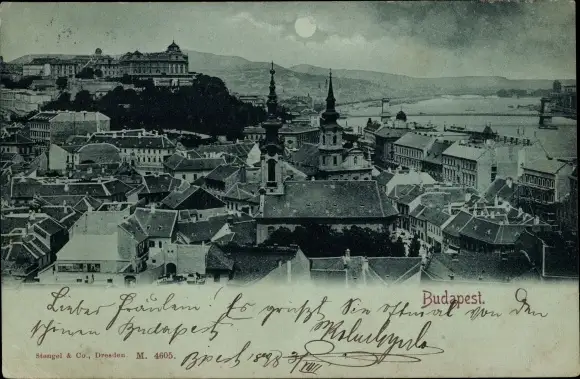 Budapest.
Liebes Fräulein! Es grüßt Sie oftmal von den
schönen Budapest
Stengel & Co., Dresden M. 4605.
Bpest 898 31/VIII